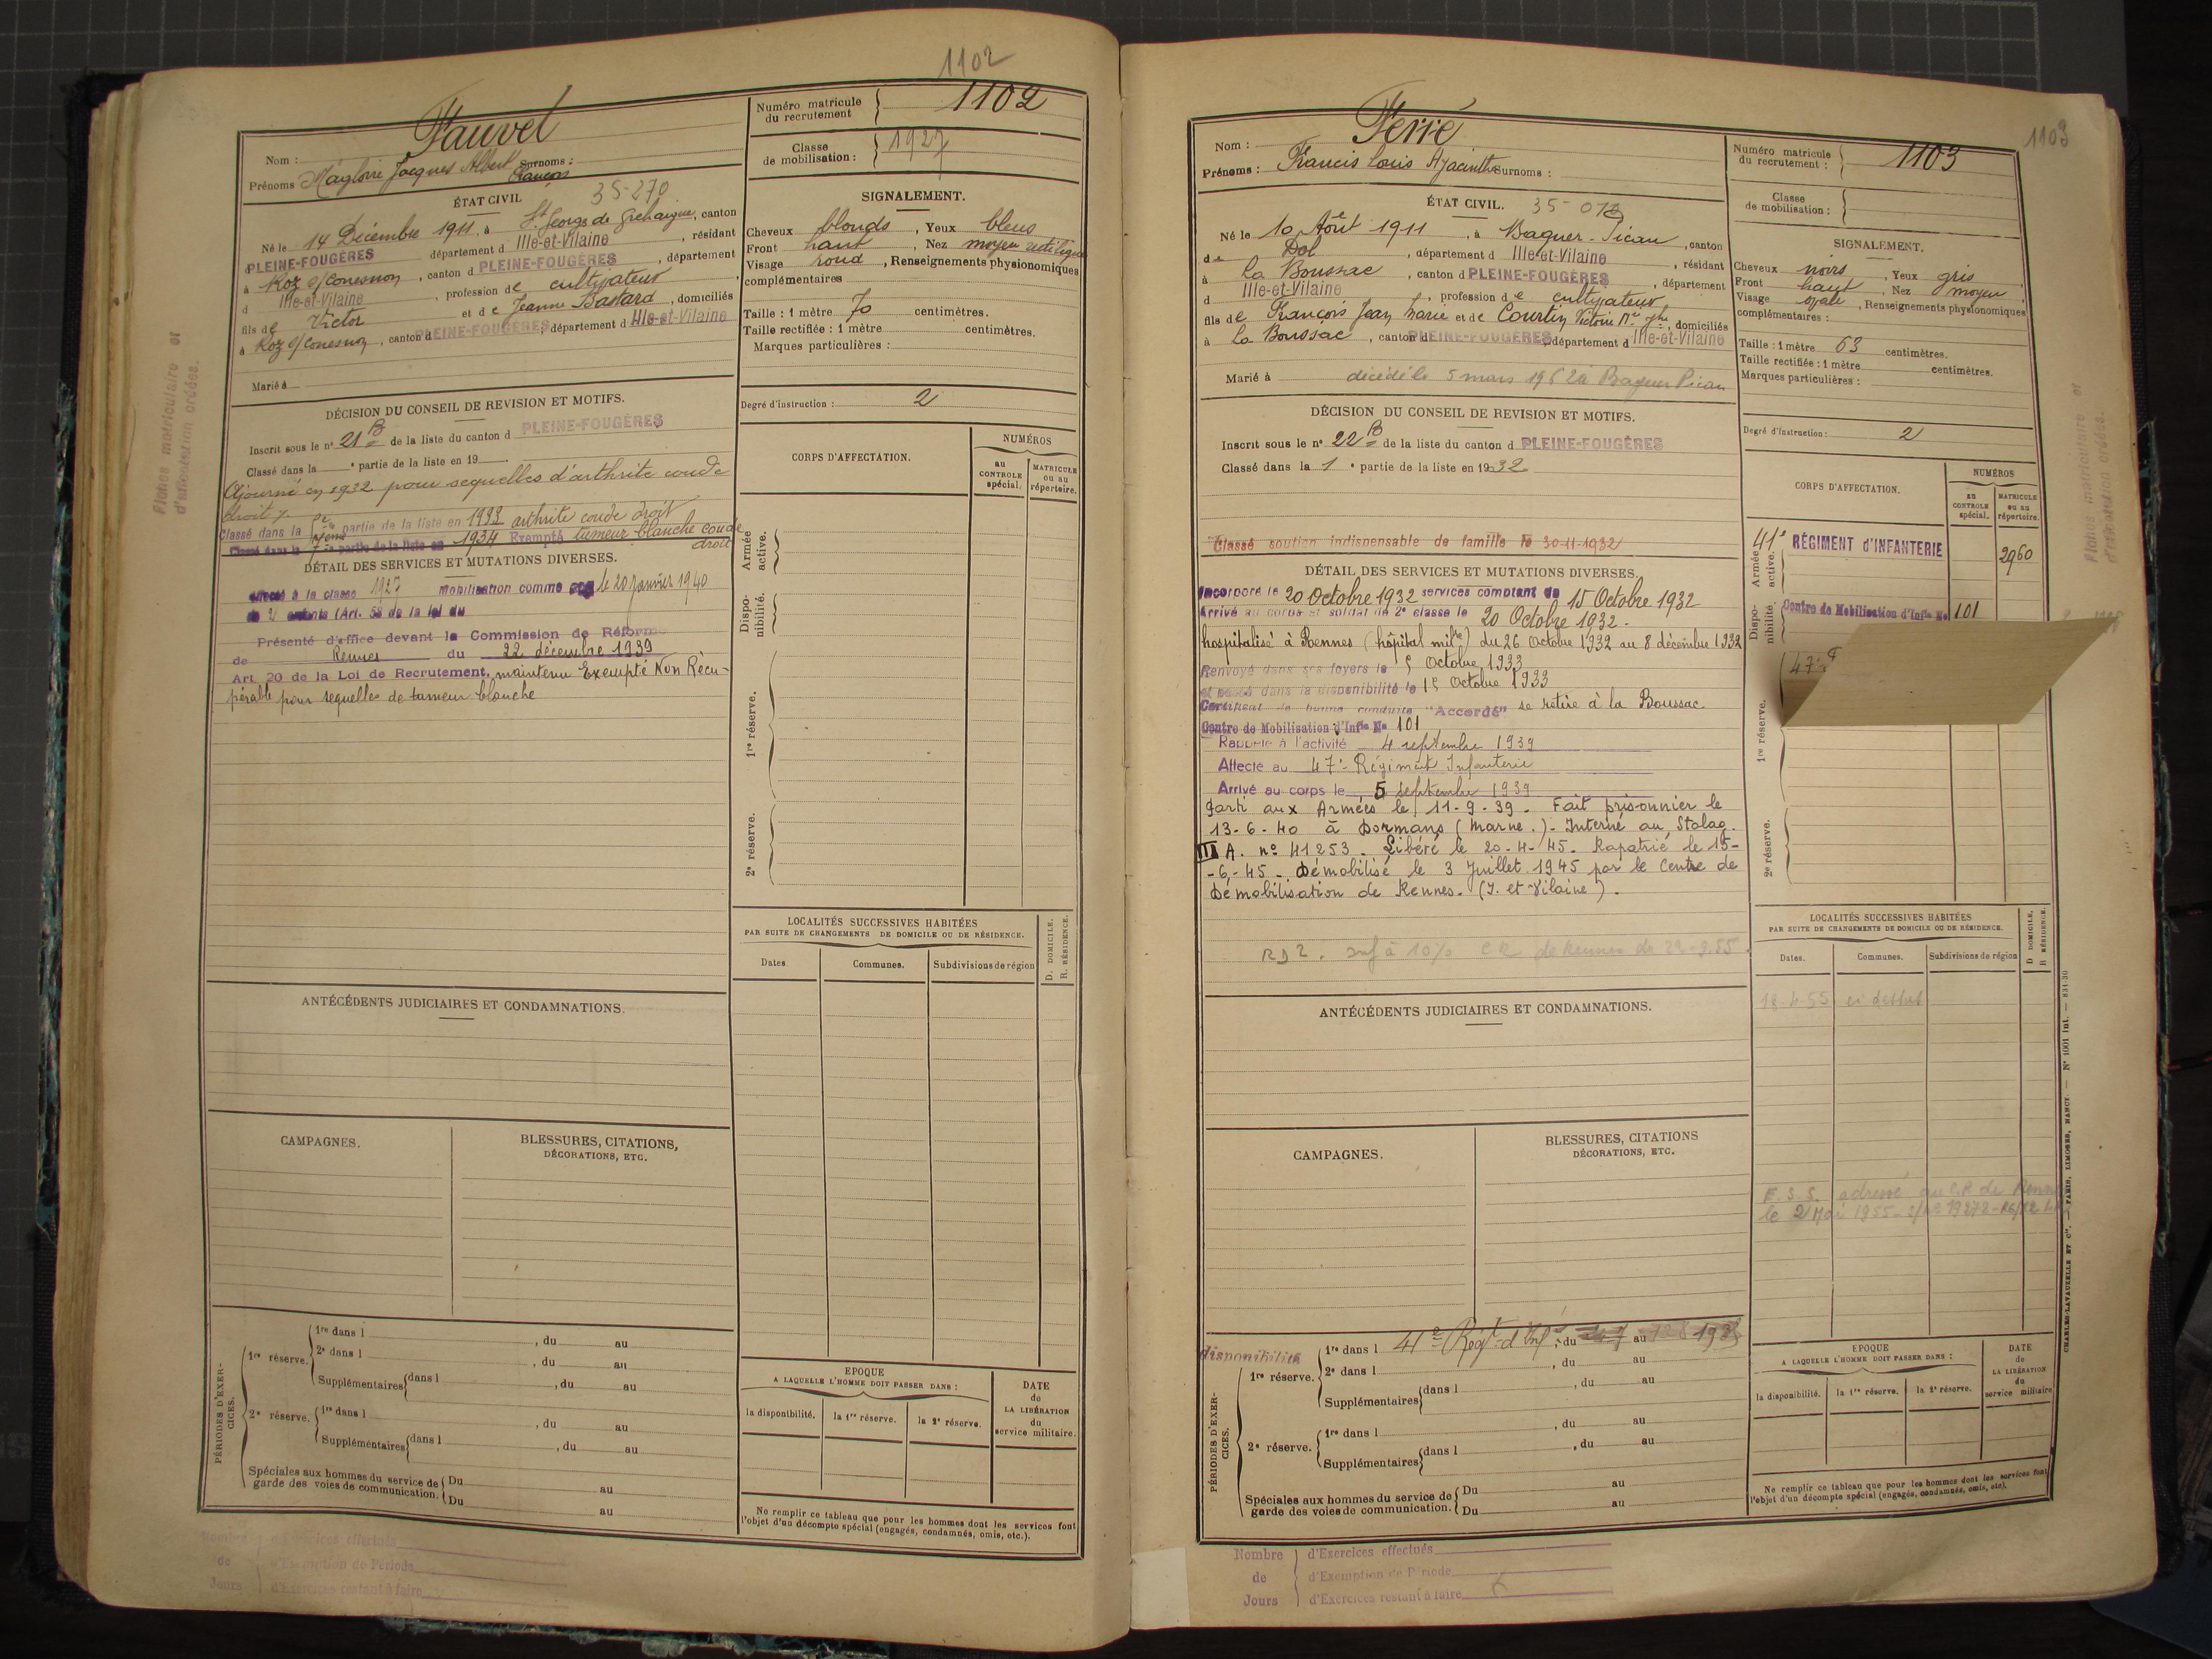 1102
Fauvel
Nom :
Prénoms Magloire Jacques Albert Surnoms :
François
ÉTAT CIVIL 35-270
Né le 14 Décembre 1911, à St Georges de Gréhaigne, canton
d PLEINE-FOUGÈRES département d Ille-et-Vilaine, résidant
à Roz s/Couesnon, canton d PLEINE-FOUGÈRES, département
d Ille-et-Vilaine, profession de cultivateur
fils de Victor et de Jeanne Bastard, domiciliés
à Roz s/Couesnon, canton d PLEINE-FOUGÈRES département d Ille-et-Vilaine
Marié à
DÉCISION DU CONSEIL DE REVISION ET MOTIFS.
Inscrit sous le n° 21 B de la liste du canton d PLEINE-FOUGÈRES
Classé dans la e partie de la liste en 19
Ajourné en 1932 pour sequelles d'arthrite coude
droit
Classé dans la partie de la liste en 1933 arthrite coude droit
Classé dans la partie de la liste en 1934 Exempté tumeur blanche coude
droit
DÉTAIL DES SERVICES ET MUTATIONS DIVERSES.
à la classe 1927 Mobilisation comme le 20 Janvier 1940
de 2 enfants (Art. 58 de la loi du
Présenté d'office devant la Commission de Réforme
de Rennes du 22 décembre 1939
Art. 20 de la Loi de Recrutement, maintenu Exempté Non Récu-
pérable pour sequelle de tumeur blanche
ANTÉCÉDENTS JUDICIAIRES ET CONDAMNATIONS.
CAMPAGNES.
BLESSURES, CITATIONS,
DÉCORATIONS, ETC.
PÉRIODES D'EXER-
CICES.
1re réserve.
1re dans l , du au
2e dans l , du au
Supplémentaires dans l , du au
2e réserve.
1re dans l , du au
Supplémentaires dans l , du au
Spéciales aux hommes du service de
garde des voies de communication.
Du au
Du au
Nombre
de
Jours
d'Exercices effectués
d'Exemption de Période
d'Exercices restant à faire
Numéro matricule
du recrutement
1102
Classe
de mobilisation :
1927
SIGNALEMENT.
Cheveux blonds, Yeux bleus
Front haut, Nez moyen rectiligne
Visage rond, Renseignements physionomiques
complémentaires
Taille : 1 mètre 70 centimètres.
Taille rectifiée : 1 mètre centimètres.
Marques particulières :
Degré d'instruction : 2
CORPS D'AFFECTATION.
NUMÉROS
au
CONTROLE
spécial.
MATRICULE
ou au
répertoire.
Armée
active.
Dispo-
nibilité.
1re réserve.
2e réserve.
LOCALITÉS SUCCESSIVES HABITÉES
PAR SUITE DE CHANGEMENTS DE DOMICILE OU DE RÉSIDENCE.
Dates.
Communes.
Subdivisions de région
D. DOMICILE.
R. RÉSIDENCE.
EPOQUE
A LAQUELLE L'HOMME DOIT PASSER DANS :
la disponibilité.
la 1re réserve.
la 2e réserve.
DATE
de
LA LIBÉRATION
du
service militaire.
Ne remplir ce tableau que pour les hommes dont les services font
l'objet d'un décompte spécial (engagés, condamnés, omis, etc.).
Fiches matriculaire et
d'affectation créées.
1103
Ferré
Nom :
Prénoms : Francis Louis Hyacinthe Surnoms :
ÉTAT CIVIL. 35-01
Né le 10 Août 1911, à Baguer-Pican, canton
de Dol, département d Ille-et-Vilaine, résidant
à la Boussac, canton d PLEINE-FOUGÈRES, département
d Ille-et-Vilaine, profession de cultivateur
fils de François Jean Marie et de Courtin Victoire Mie Jhe, domiciliés
à la Boussac, canton d PLEINE-FOUGÈRES département d Ille-et-Vilaine
Marié à décédé le 5 mars 1962 à Baguer Pican
DÉCISION DU CONSEIL DE REVISION ET MOTIFS.
Inscrit sous le n° 22 B de la liste du canton d PLEINE-FOUGÈRES
Classé dans la 1 e partie de la liste en 1932
Classé soutien indispensable de famille le 30-11-1932
DÉTAIL DES SERVICES ET MUTATIONS DIVERSES.
Incorporé le 20 Octobre 1932 services comptant du 15 Octobre 1932
Arrivé au corps et soldat de 2e classe le 20 Octobre 1932.
hospitalisé à Rennes (hôpital milre) du 26 Octobre 1932 au 8 décembre 1932
Renvoyé dans ses foyers le 5 Octobre 1933
et passé dans la disponibilité le 15 Octobre 1933
Certificat de bonne conduite "Accordé" se retire à la Boussac.
Centre de Mobilisation d'Infie No 101
Rappelé à l'activité 4 septembre 1939
Affecté au 47e Régiment Infanterie
Arrivé au corps le 5 septembre 1939
Parti aux Armées le 11-9-39. Fait prisonnier le
13-6-40 à Dormans (Marne.). Interné au Stalag.
III A. n° 41253. Libéré le 20-4-45. Rapatrié le 15-
-6-45. Démobilisé le 3 Juillet 1945 par le Centre de
Démobilisation de Rennes. (I. et Vilaine).
RD 2. inf à 10% C R de Rennes de 29-3.55
ANTÉCÉDENTS JUDICIAIRES ET CONDAMNATIONS.
CAMPAGNES.
BLESSURES, CITATIONS
DÉCORATIONS, ETC.
disponibilité
PÉRIODES D'EXER-
CICES.
1re réserve.
1re dans l 41e Régt d'Inf, du au
2e dans l , du au
Supplémentaires dans l , du au
2e réserve.
, du au
1re dans l
Supplémentaires dans l , du au
Spéciales aux hommes du service de
garde des voies de communication.
Du au
Du au
Nombre
de
Jours
d'Exercices effectués
d'Exemption de Période
d'Exercices restant à faire
Numéro matricule
du recrutement :
1103
Classe
de mobilisation :
SIGNALEMENT.
Cheveux noirs, Yeux gris
Front haut, Nez moyen
Visage ovale, Renseignements physionomiques
complémentaires :
Taille : 1 mètre 63 centimètres.
Taille rectifiée : 1 mètre centimètres.
Marques particulières :
Degré d'instruction : 2
CORPS D'AFFECTATION.
NUMÉROS
au
CONTROLE
spécial.
MATRICULE
ou au
répertoire.
Armée
active.
41e RÉGIMENT d'INFANTERIE 2960
Dispo-
nibilité.
Centre de Mobilisation d'Infie No 101
47e
1re réserve.
2e réserve.
LOCALITÉS SUCCESSIVES HABITÉES
PAR SUITE DE CHANGEMENTS DE DOMICILE OU DE RÉSIDENCE.
Dates.
Communes.
Subdivisions de région
D. DOMICILE.
R. RÉSIDENCE.
18-4-55 ci dessus
E.S.S. adressé au C.R de Rennes
le 2 Mai 1955
EPOQUE
A LAQUELLE L'HOMME DOIT PASSER DANS :
la disponibilité.
la 1re réserve.
la 2e réserve.
DATE
de
LA LIBÉRATION
du
service militaire.
Ne remplir ce tableau que pour les hommes dont les services font
l'objet d'un décompte spécial (engagés, condamnés, omis, etc).
CHARLES-LAVAUZELLE ET Cie. — PARIS, LIMOGES, NANCY. — N° 1001 Int. — 831-30
Fiches matriculaire et
d'affectation créées.